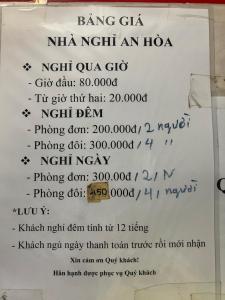 BẢNG GIÁ
NHÀ NGHỈ AN HÒA
❖ NGHỈ QUA GIỜ
- Giờ đầu: 80.000đ
- Từ giờ thứ hai: 20.000đ
❖ NGHỈ ĐÊM
- Phòng đơn: 200.000đ/2 người
- Phòng đôi: 300.000đ/4 "
❖ NGHỈ NGÀY
- Phòng đơn: 300.00đ /2/ N
- Phòng đôi: 450.000đ/4/ người
*LƯU Ý:
- Khách nghỉ đêm tính từ 12 tiếng
- Khách ngủ ngày thanh toán trước rồi mới nhận
Xin cảm ơn Quý khách!
Hân hạnh được phục vụ Quý khách